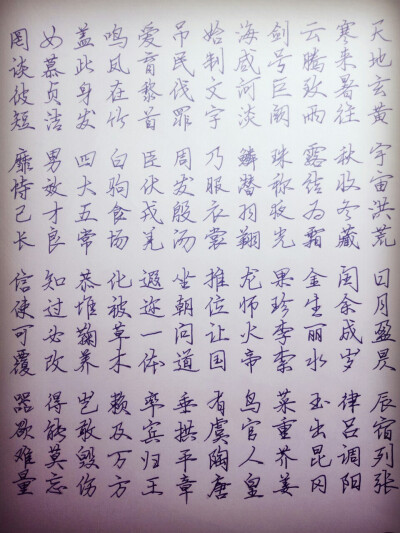 天地玄黄宇宙洪荒日月盈昃辰宿列张
寒来暑往秋收冬藏闰余成岁律吕调阳
云腾致雨露结为霜金生丽水玉出昆冈
剑号巨阙珠称夜光果珍李柰菜重芥姜
海咸河淡鳞潜羽翔龙师火帝鸟官人皇
始制文字乃服衣裳推位让国有虞陶唐
吊民伐罪周发殷汤坐朝问道垂拱平章
爱育黎首臣伏戎羌遐迩一体率宾归王
鸣凤在竹白驹食场化被草木赖及万方
盖此身发四大五常恭惟鞠养岂敢毁伤
女慕贞洁男效才良知过必改得能莫忘
罔谈彼短靡恃己长信使可覆器欲难量